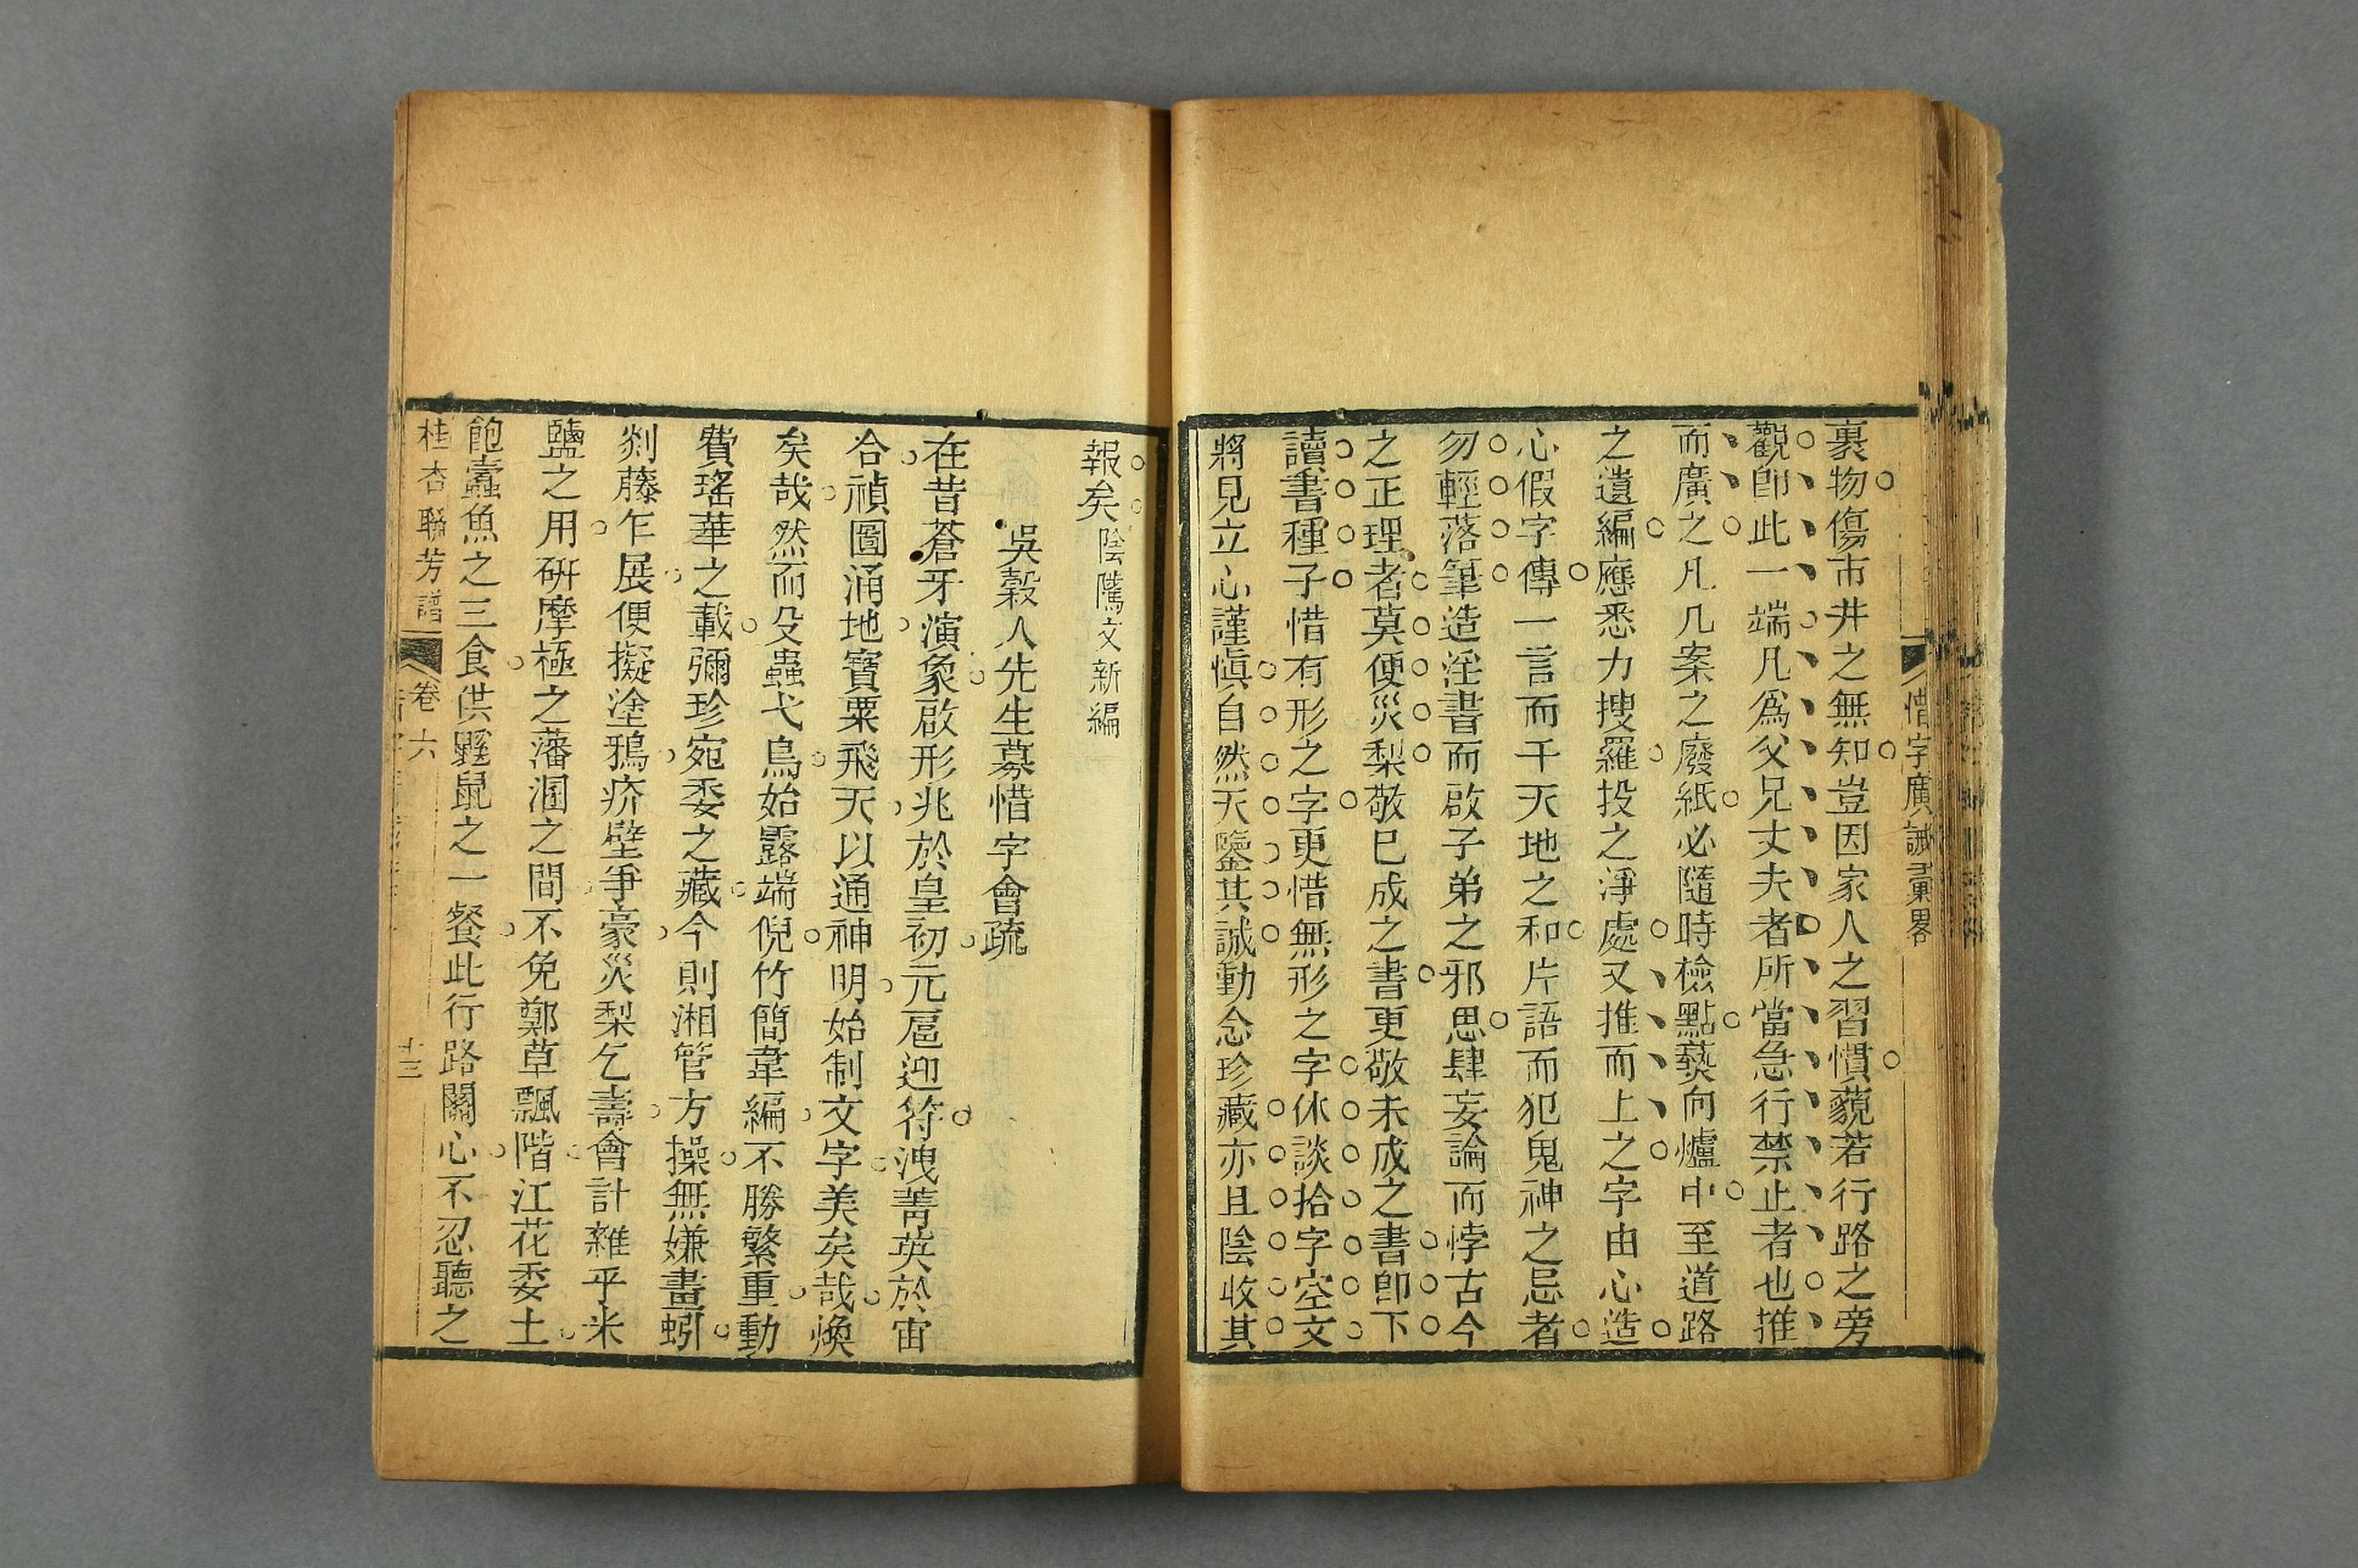 惜字廣誡彙畧
裏物傷市井之無知豈因家人之習慣藐若行路之旁
觀卽此一端凡爲父兄丈夫者所當急行禁止者也推
而廣之凡几案之廢紙必隨時檢點爇向爐中至道路
之遺編應悉力搜羅投之淨處又推而上之字由心造
心假字傳一言而干天地之和片語而犯鬼神之忌者
勿輕落筆造淫書而啟子弟之邪思肆妄論而悖古今
之正理者莫便災梨敬已成之書更敬未成之書卽下
讀書種子惜有形之字更惜無形之字休談拾字空文
將見立心謹愼自然天鑒其誠動念珍藏亦且陰收其
報矣陰隲文新編
吳穀人先生募惜字會疏
在昔蒼牙演象啟形兆於皇初元扈迎符洩菁英於宙
合禎圖涌地寶粟飛天以通神明始制文字美矣哉煥
矣哉然而殳蟲弋鳥始露端倪竹簡韋編不勝繁重動
費瑤華之載彌珍宛委之藏今則湘管方操無嫌畫蚓
剡藤乍展便擬塗鴉疥壁爭豪災梨乞壽會計雜乎米
鹽之用硏摩極之藩溷之間不免鄭草飄階江花委土
飽蠹魚之三食供鼷鼠之一餐此行路關心不忍聽之
桂杏聯芳譜 卷六 十三